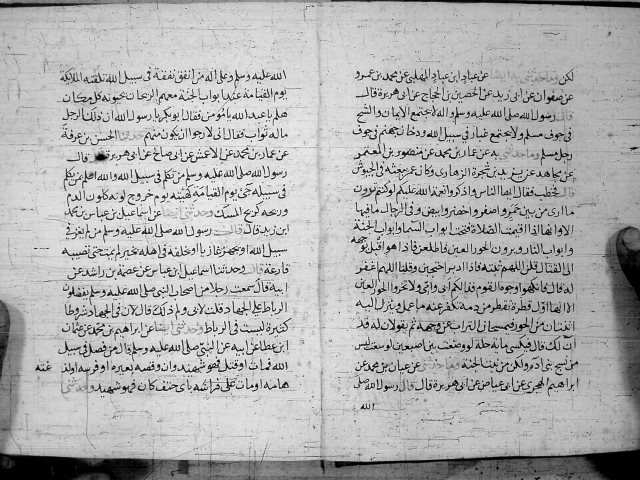 لكن وما حدثنى به ايضا عن عباد ابن عباد المهلبى عن محمد بن عمرو
عن صفوان عن ابى زيد عن الحصين بن الحجاج عن ابى هريرة قال
قال رسول الله صلى الله عليه وسلم واله لا يجتمع الايمان والشح
فى جوف مسلم ولا يجتمع غبار فى سبيل الله ودخان جهنم فى جوف
رجل مسلم وما حدثنى به عن عمار بن محمد عن منصور بن المعتمر
عن مجاهد عن يزيد بن شجرة الرهاوى وكان عمر يبعثه فى الجيوش
قال فخطب فقال ايها الناس واذكروا نعمة الله عليكم لو كنتم ترون
ما ارى من بين احمر واصفر واخضر وابيض وفى الرحال ما فيها
الا وانها اذا اقيمت الصلاة فتحت ابواب السما وابواب الجنة
وابواب النار ويرون الحور العين فاطلعن فاذا هو اقبل بوجهه
الى القتال قلن اللهم ثبته فاذا ادبر احتجبن وقلن اللهم اغفر
له قال فانهكوا وجوه القوم فدا لكم ابى وامى ولا تخزوا الحور العين
الا انها اول قطرة تقطر من دمه تكفر عنه ما عمل وينزل اليه
اثنتان من الحور فيمسحان التراب عن وجهه ثم يقولان له قد
آن لك قال فيكسى ماية حلة لو وضعت بين اصبعين لوسعت ليس
من نسج بنى آدم ولكن من نبت الجنة وما حدثنى عن عباد بن محمد عن
ابراهيم الهجرى عن ابى عياض عن ابى هريرة قال قال رسول الله صلى
الله
الله عليه وسلم وعلى اله من انفق نفقة فى سبيل الله تلقته الملائكة
يوم القيامة عند ابواب الجنة معهم الريحان يحيونه كل مكان
هلم يا عبد الله يا مؤمن فقال ابو بكر يا رسول الله ان ذلك الرجل
ما له ثواب فقال انى لارجوا ان يكون منهم حدثنا الحسن بن عرفة
عن عمار بن محمد عن الاعمش عن ابى صالح عن ابى هريرة قال قال
رسول الله صلى الله عليه وسلم من تكلم فى سبيل الله والله اعلم من تكلم
فى سبيله جاء يوم القيامة كهيئته يوم خروج لونه كلون الدم
وريحه كريح المسك وحدثنى ايضا عن اسماعيل بن عياش محمد
ابن زيد قال قال رسول الله صلى الله عليه وسلم من لم يغز فى
سبيل الله او يجهز غازيا او يخلفه فى اهله بخير لم يمت حتى تصيبه
قارعة قال وحدثنا اسماعيل ابن عياش عن عصمة بن راشد عن
ابيه قال سمعت رجلا من اصحاب النبى صلى الله عليه وسلم يفضلون
الرباط على الجهاد قلت لابى ولم ذلك قال لان فى الجهاد شروطا
كثيرة ليست فى الرباط وحدثنى ايضا عن ابراهيم بن محمد عن عثمان
ابن عطا عن ابيه عن النبى صلى الله عليه وسلم قال من فصل فى سبيل
الله فمات او قتل فهو شهيد وان وقصه بعيره او فرسه او لدغته
هامه او مات على فراشه باى حتف كان فهو شهيد وحدثنى